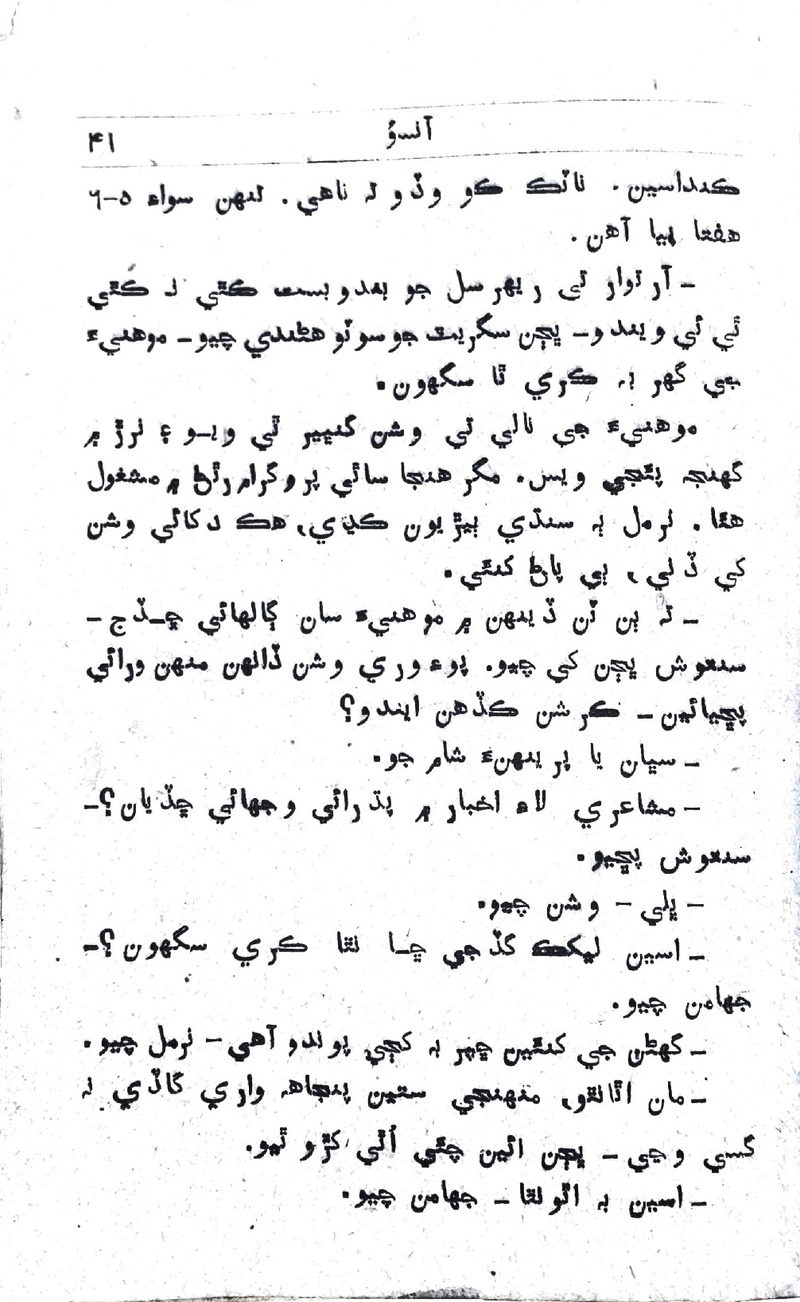 آنسوُ ۴۱
ڪنداسين. ناٽڪ ڪو وڏو تہ ناهي. تنهن سواءِ ۵-۶
هفتا پيا آهن.
- آرتوار تي ريهرسل جو بندوبست ڪٿي نہ ڪٿي
ٿي ئي ويندو- ڀڃن سگريٽ جو سوٽو هڻندي چيو- موهنيءَ
جي گهر بہ ڪري ٿا سگهون.
موهنيءَ جي نالي تي وشن گنڀير ٿي ويو ۽ نرڙ ۾
گهنجہ پئجي ويس. مگر هنجا ساٿي پروگرام رٿڻ ۾ مشغول
هئا. نرمل بہ سنڌي ٻيڙيون ڪڍي، هڪ دکائي وشن
کي ڏني، ٻي پاڻ کنئي.
- تہ ٻن ٽن ڏينهن ۾ موهنيءَ سان ڳالهائي ڇـڏج -
سنتوش ڀڃن کي چيو. پوءِ وري وشن ڏانهن منهن ورائي
پڇيائين - ڪرشن ڪڏهن ايندو؟
- سڀان يا پرينهنءَ شام جو.
- مشاعري لاءِ اخبار ۾ پڌرائي وجهائي ڇڏيان؟-
سنتوش پڇيو.
- ڀلي - وشن چيو.
- اسين ليکڪ گڏجي ڇـا نٿا ڪري سگهون؟-
جهامن چيو.
- گهڻن جي کنئين ڇپر بہ کڄي پوندو آهي - نرمل چيو.
- مان اٿانٿو، منهنجي ستين پنجاهہ واري گاڏي نہ
گسي وڃي - ڀڃن ائين چئي اُٿي کڙو ٿيو.
- اسين بہ اٿونٿا - جهامن چيو.